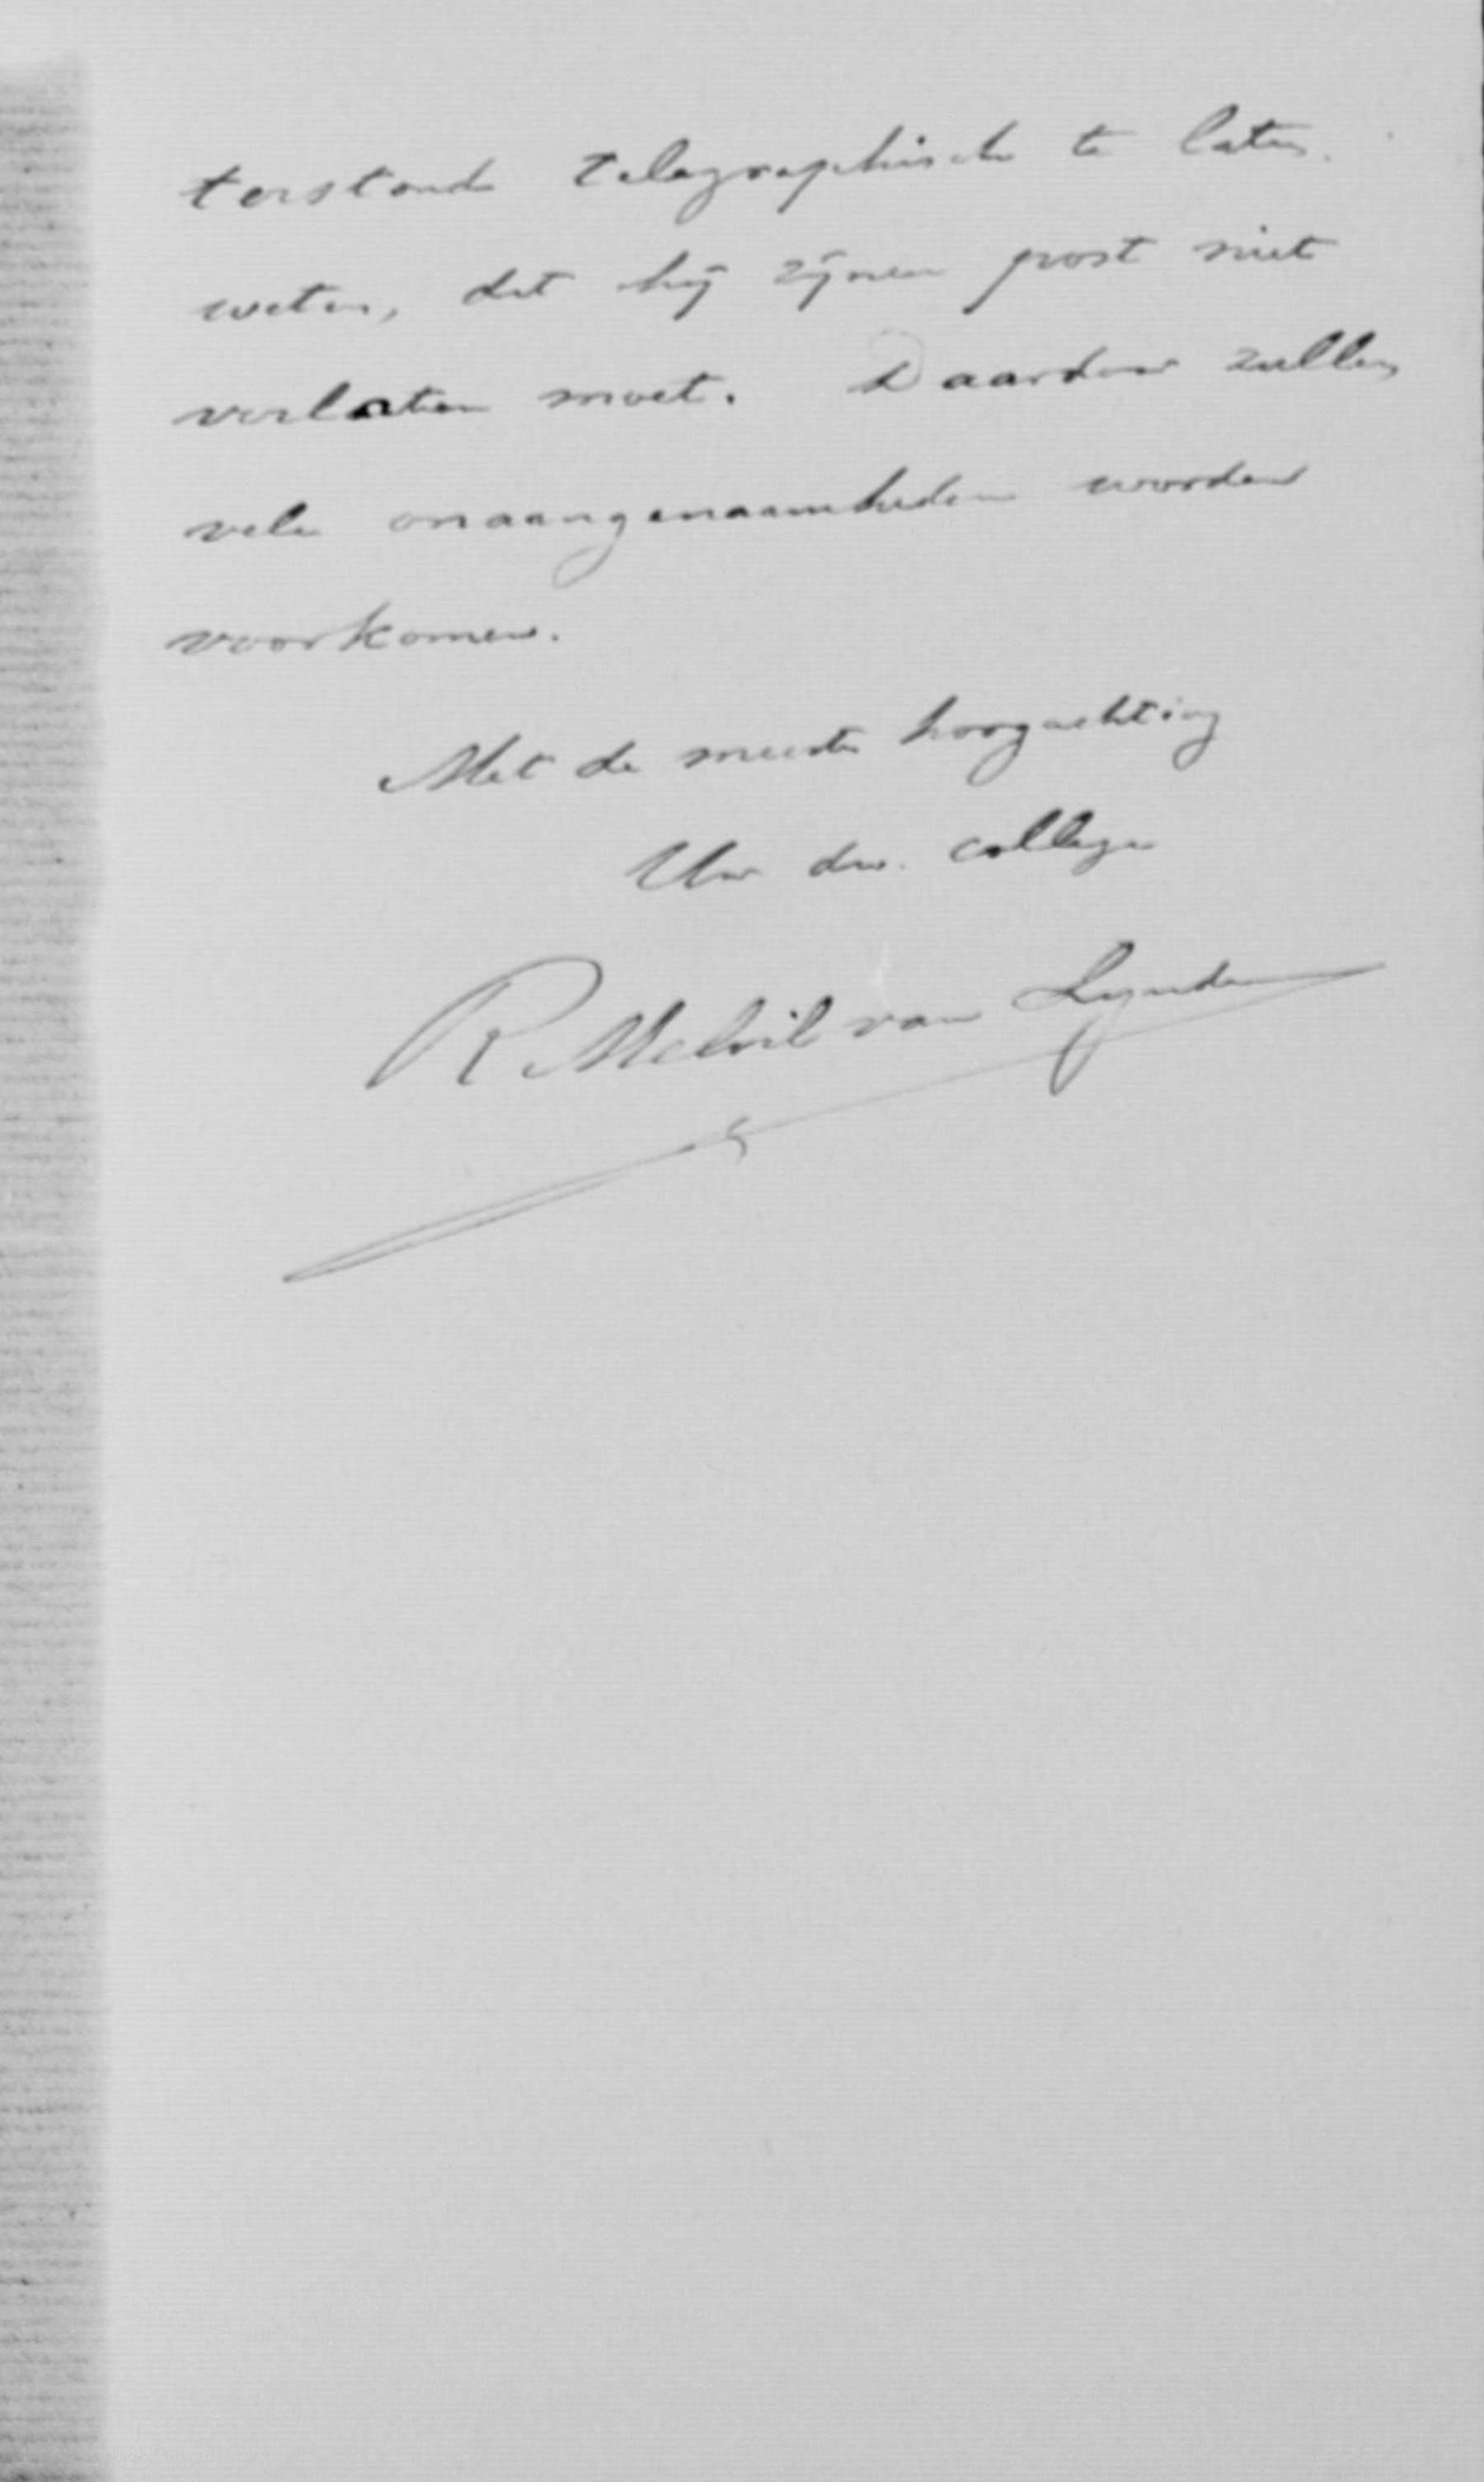 terstond telegraphisch te laten
weten, dat hij zijnen post niet
verlaten moet. Daardoor zullen
vele onaangenaamheden worden
voorkomen.
Met de meeste hoogachting
Uw dw. collega
R Melvil van Lynden